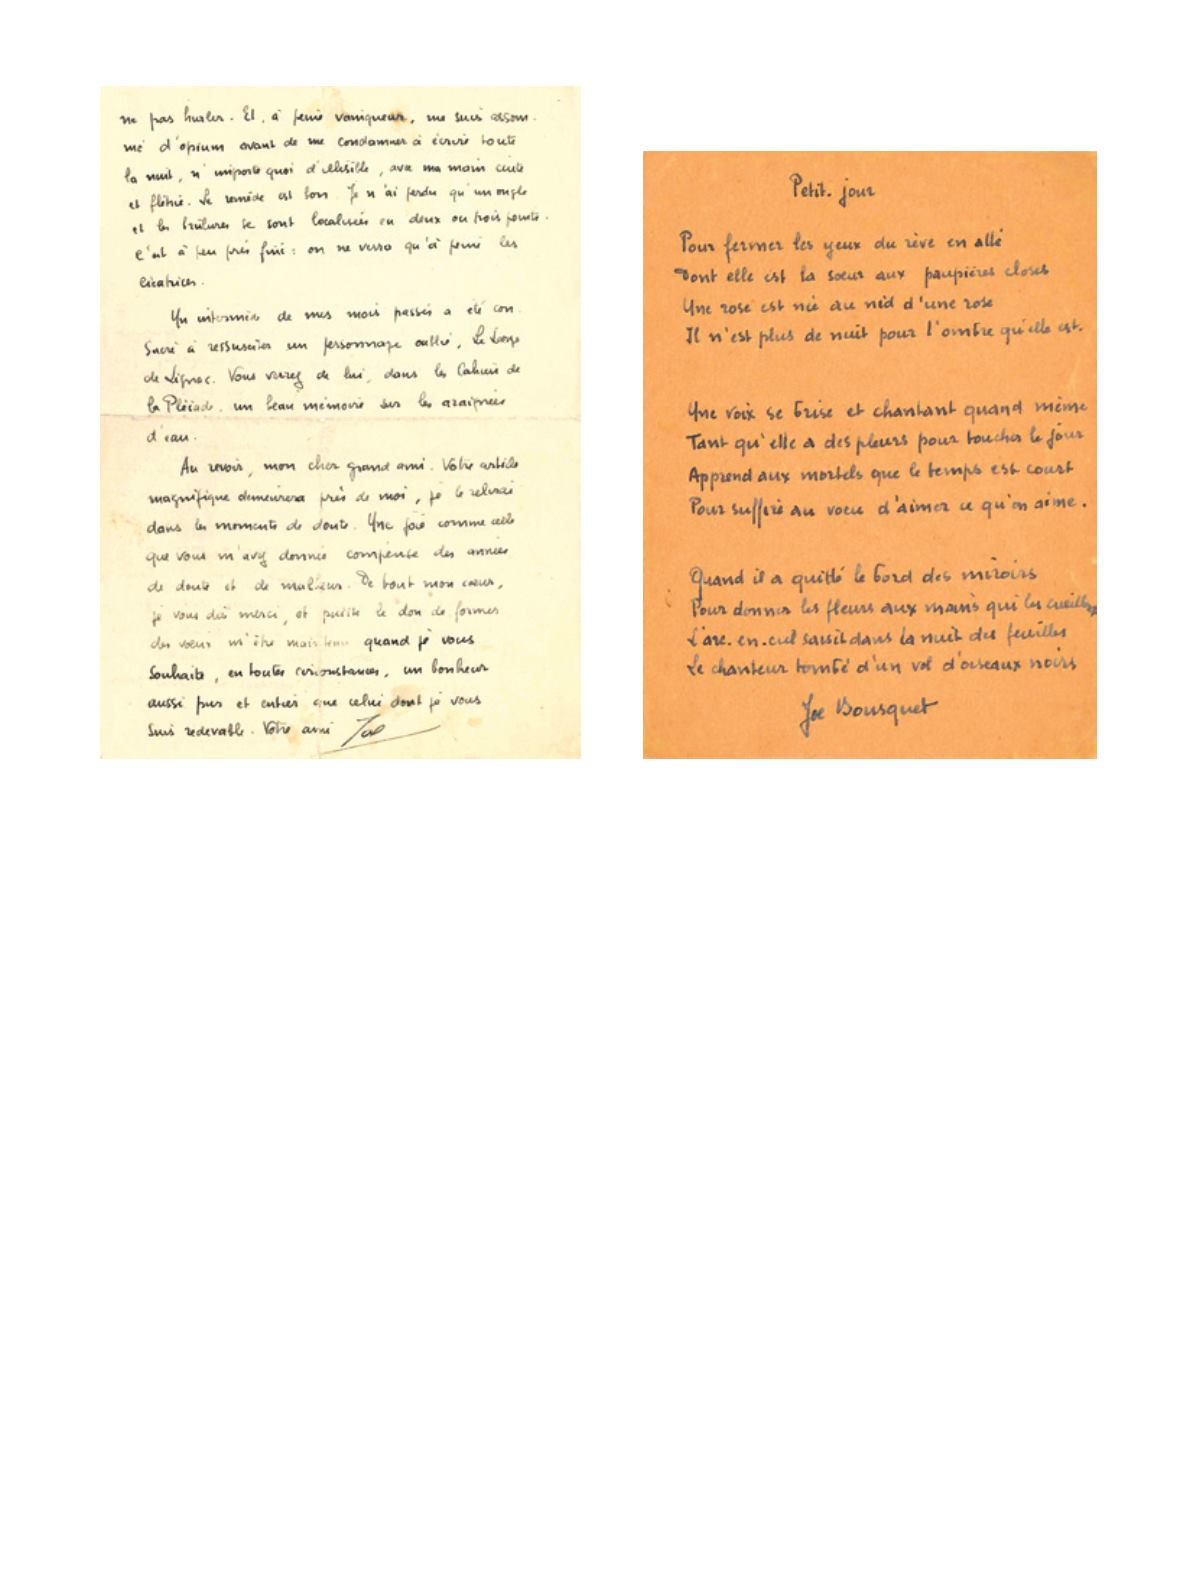 ne pas hurler. Et, à peine vainqueur, me suis assom-
mé d'opium avant de me condamner à écrire toute
la nuit, n'importe quoi d'illisible, avec ma main cuite
et flétrie. Le remède est bon. Je n'ai perdu qu'un ongle
et les brûlures se sont localisées en deux ou trois points.
C'est à peu près fini : on ne verra qu'à peine les
cicatrices.
Un intermède de mes mois passés a été con-
sacré à ressusciter un personnage oublié, Le Large
de Lignac. Vous verrez de lui, dans les Cahiers de
la Pléiade, un beau mémoire sur les araignées
d'eau.
Au revoir, mon cher grand ami. Votre article
magnifique demeurera près de moi, je le relirai
dans les moments de doute. Une joie comme celle
que vous m'avez donnée compense des années
de doute et de malheur. De tout mon cœur,
je vous dis merci, et puisse le don de former
des vœux m'être maintenu quand je vous
souhaite, en toutes circonstances, un bonheur
aussi pur et entier que celui dont je vous
suis redevable. Votre ami Joe
Petit-jour
Pour fermer les yeux du rêve en allé
Dont elle est la sœur aux paupières closes
Une rose est née au nid d'une rose
Il n'est plus de nuit pour l'ombre qu'elle est.
Une voix se brise et chantant quand même
Tant qu'elle a des pleurs pour toucher le jour
Apprend aux mortels que le temps est court
Pour suffire au vœu d'aimer ce qu'on aime.
Quand il a quitté le bord des miroirs
Pour donner les fleurs aux mains qui les cueillent
L'arc-en-ciel saisit dans la nuit des feuilles
Le chanteur tombé d'un vol d'oiseaux noirs
Joe Bousquet